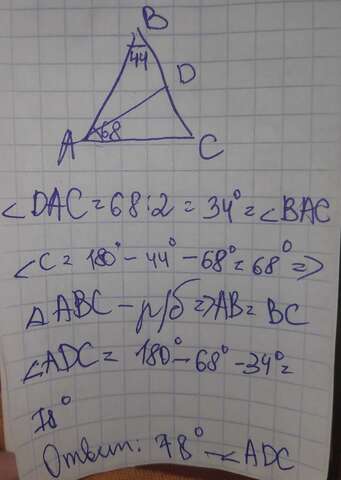 B
44
D
68
A
C
∠DAC=68:2=34°=∠BAC
∠C=180°-44°-68°=68°=>
△ABC-р/б=>AB=BC
∠ADC=180°-68°-34°=
78°
Ответ: 78°-∠ADC